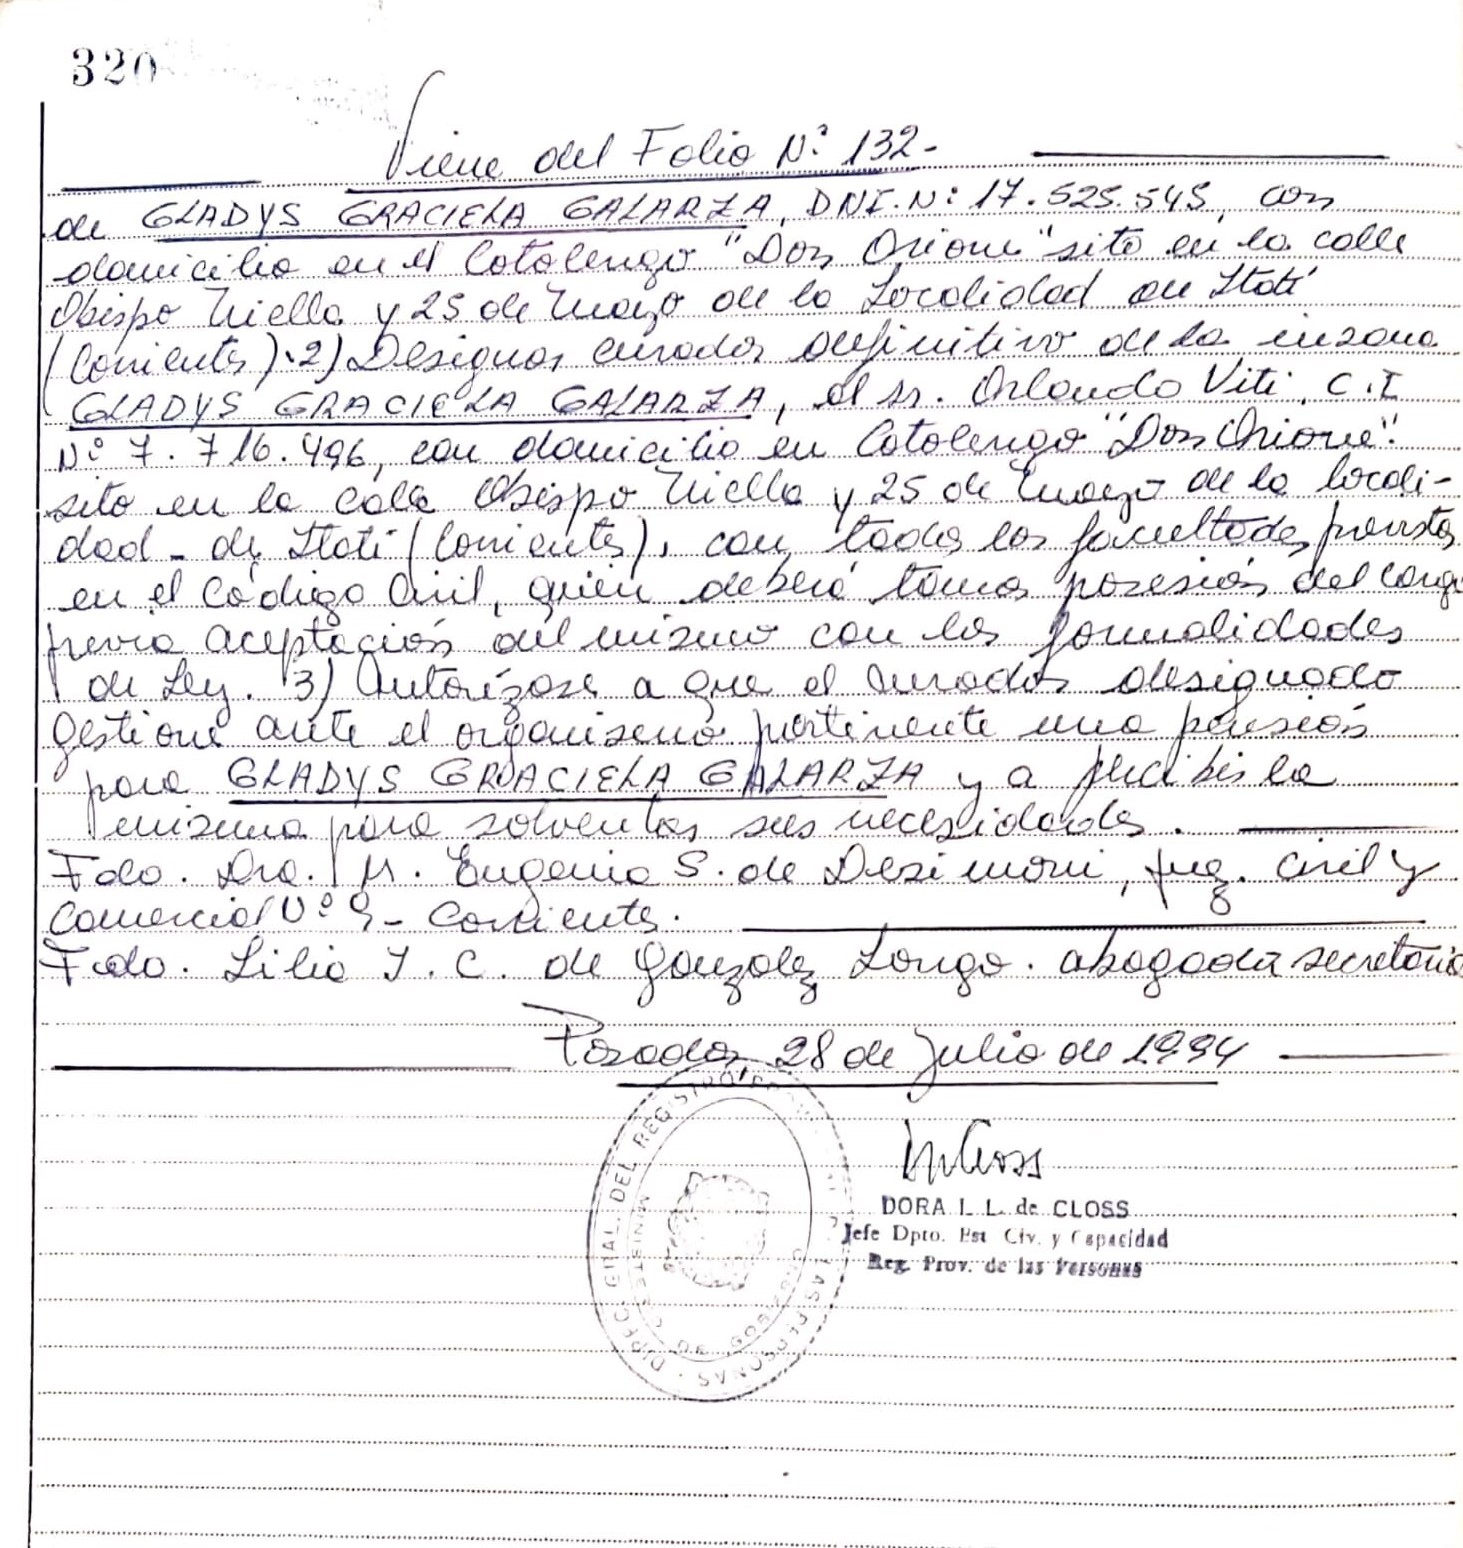 320
Viene del Folio Nº 132-
de GLADYS GRACIELA GALARZA, DNI. Nº 17.525.545, con
domicilio en el Cotolengo "Don Orione" sito en la calle
Obispo Niella y 25 de Mayo de la Localidad de Itatí
(Corrientes).2) Designar curador definitivo de la insana
GLADYS GRACIELA GALARZA, al sr. Orlando Viti, C.I
Nº 7.716.496, con domicilio en Cotolengo "Don Orione".
sito en la calle Obispo Niella y 25 de Mayo de la locali-
dad - de Itatí (Corrientes), con todas las facultades previstas
en el Código Civil, quién deberá tomar posesión del cargo
previa aceptación del mismo con las formalidades
de Ley. 3) Autorízase a que el curador designado
gestione ante el organismo pertinente una pensión
para GLADYS GRACIELA GALARZA y a percibir la
misma para solventar sus necesidades.
Fdo. Dra. M. Eugenia S. de Desimoni, Juez. Civil y
Comercial Nº 9- Corrientes.
Fdo. Lilia J. C. de González Longo. abogada secretaria
Posadas, 28 de Julio de 1994
DORA I. L. de CLOSS
Jefe Dpto. Est Civ. y Capacidad
Reg. Prov. de las Personas
DIREC. GRAL. DEL REGISTRO PERSONAS
MINISTERIO DE GOBIERNO